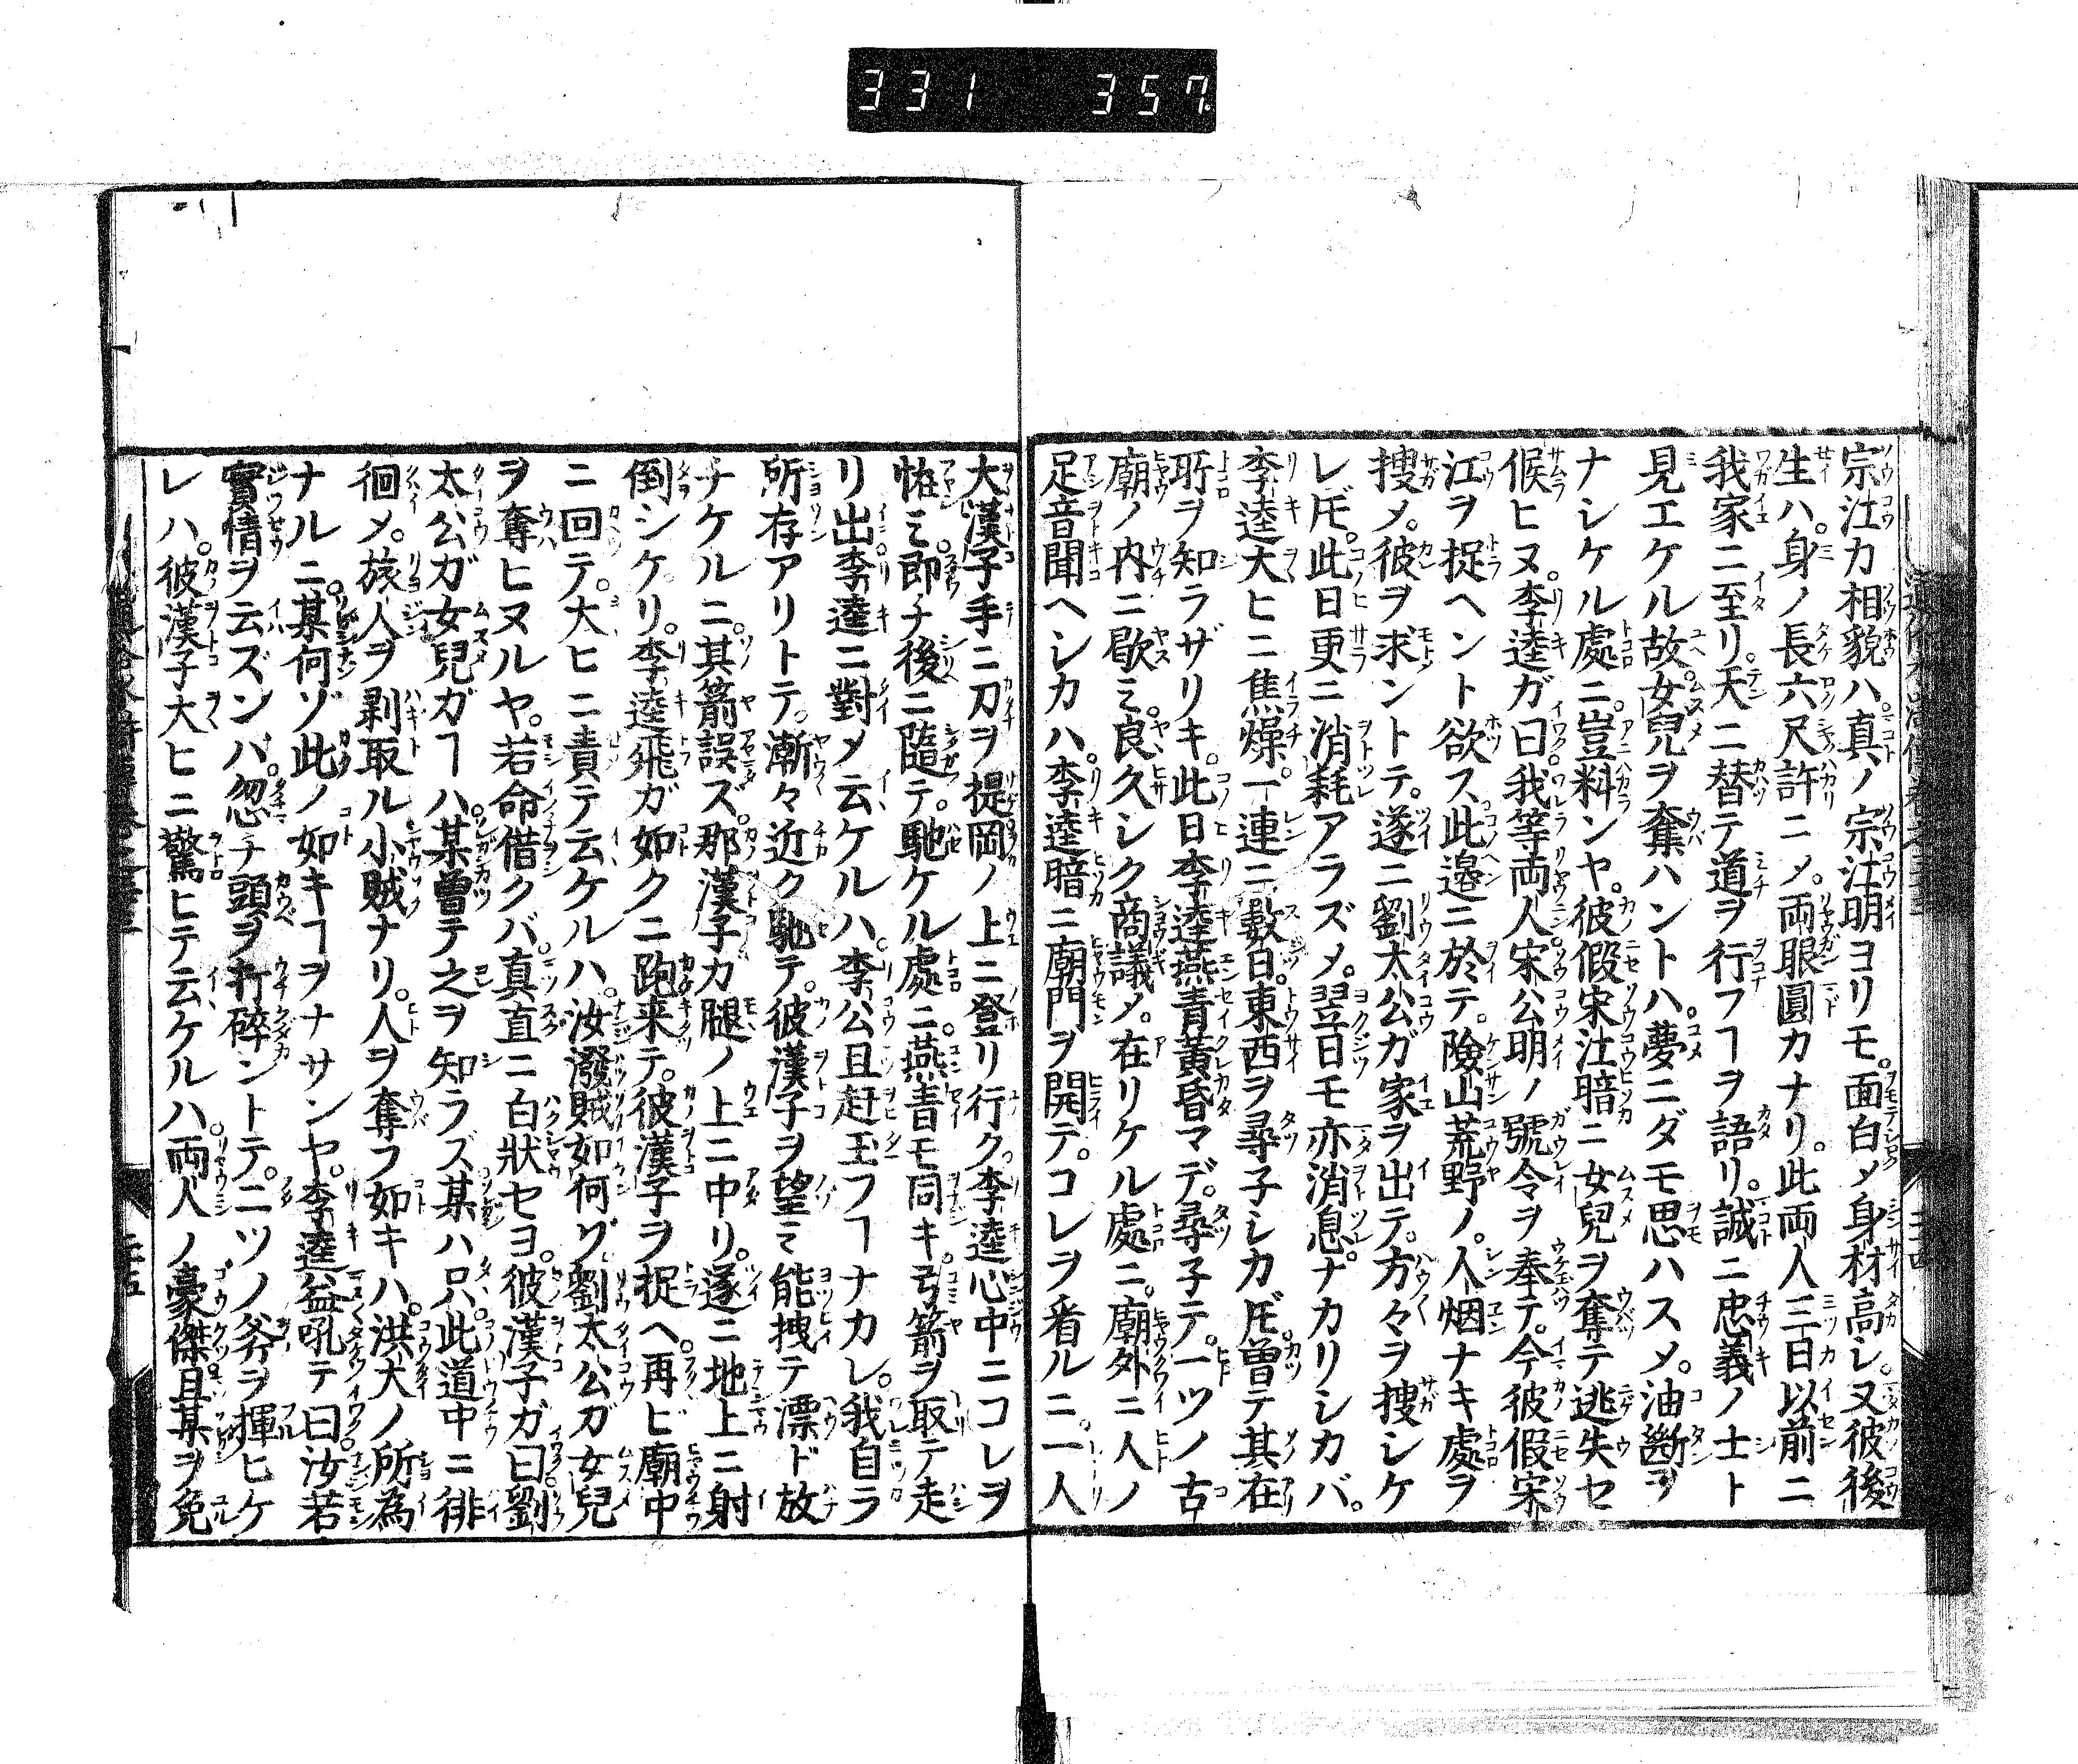 331 357
宗江カ相貌ハ。真ノ宗江明ヨリモ。面白メ身材高シ。又彼後
生ハ。身ノ長六尺許ニメ。両眼圓カナリ。此両人三日以前ニ
我家ニ至リ。天ニ替テ道ヲ行フヿヲ語リ。誠ニ忠義ノ士ト
見エケル故。女兒ヲ奪ハントハ。夢ニダモ思ハスメ。油斷ヲ
ナシケル處ニ。豈料ンヤ。彼假宋江暗ニ女兒ヲ奪テ逃失セ
候ヒヌ。李逵ガ曰我等両人宋公明ノ號令ヲ奉テ。今彼假宋
江ヲ捉ヘント欲ス此邉ニ於テ。險山荒野ノ。人烟ナキ處ヲ
搜メ。彼ヲ求ントテ。遂ニ劉太公ガ家ヲ出テ。方々ヲ搜シケ
レ𪜈。此日更ニ消耗アラズメ。翌日モ亦消息ナカリシカバ。
李逵大ヒニ焦燥。一連ニ數日。東西ヲ尋子シカ𪜈。曽テ其在
所ヲ知ラザリキ。此日李逵燕青黄昏マデ。尋子テ。一ツノ古
廟ノ内ニ歇ミ。良久シク商議メ。在リケル處ニ。廟外ニ人ノ
足音聞ヘシカハ。李逵暗ニ廟門ヲ開テ。コレヲ看ルニ。一人
大漢子手ニ刀ヲ提岡ノ上ニ登リ行ク。李逵心中ニコレヲ
恠ミ即チ後ニ隨テ。馳ケル處ニ。燕青モ同キ。弓箭ヲ取テ走
リ出李逵ニ對メ云ケルハ。李公且赶玉フヿナカレ。我自ラ
所存アリトテ。漸々近ク馳テ。彼漢子ヲ望ミ能拽テ漂ド放
チケルニ。其箭誤ズ。那漢子カ腿ノ上ニ中リ。遂ニ地上ニ射
倒シケリ。李逵飛ガ如クニ跑来テ。彼漢子ヲ捉ヘ。再ビ廟中
ニ回テ。大ヒニ責テ云ケルハ。汝潑賊如何ゾ劉太公ガ女兒
ヲ奪ヒヌルヤ。若命借クバ。真直ニ白状セヨ。彼漢子ガ曰劉
太公ガ女兒ガヿハ。某曽テ之ヲ知ラズ某ハ只。此道中ニ徘
徊メ。旅人ヲ剥取ル小賊ナリ。人ヲ奪フ如キハ。洪大ノ所為
ナルニ。某何ゾ此ノ如キヿヲナサンヤ。李逵益吼テ曰汝若
實情ヲ云ズンバ。忽チ頭ヲ打碎ントテ。二ツノ斧ヲ揮ヒケ
レハ。彼漢子大ヒニ驚ヒテ云ケルハ。両人ノ豪傑。且某ヲ免